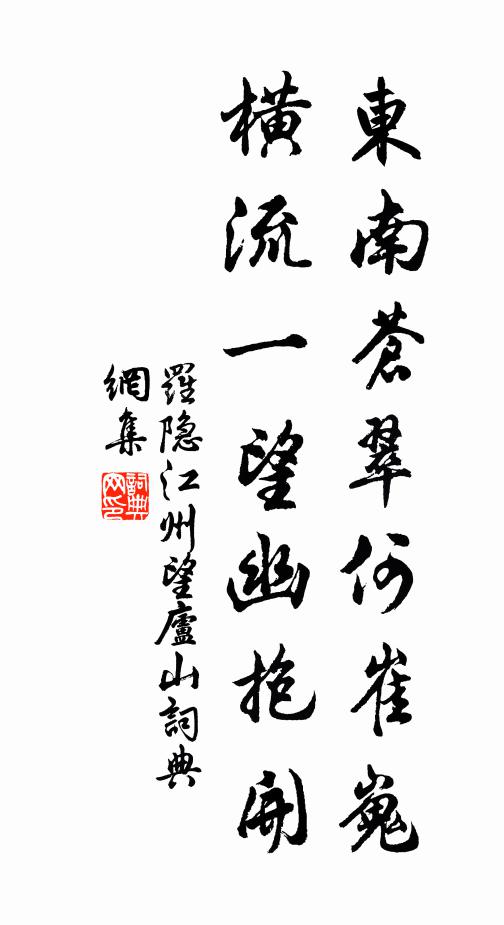 東南蒼翠何崔嵬
橫流一望幽抱開
羅隐江州望廬山詞典
網集
詞典
网印